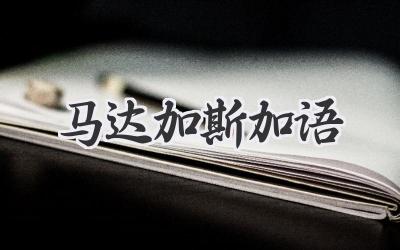 马达加斯加语